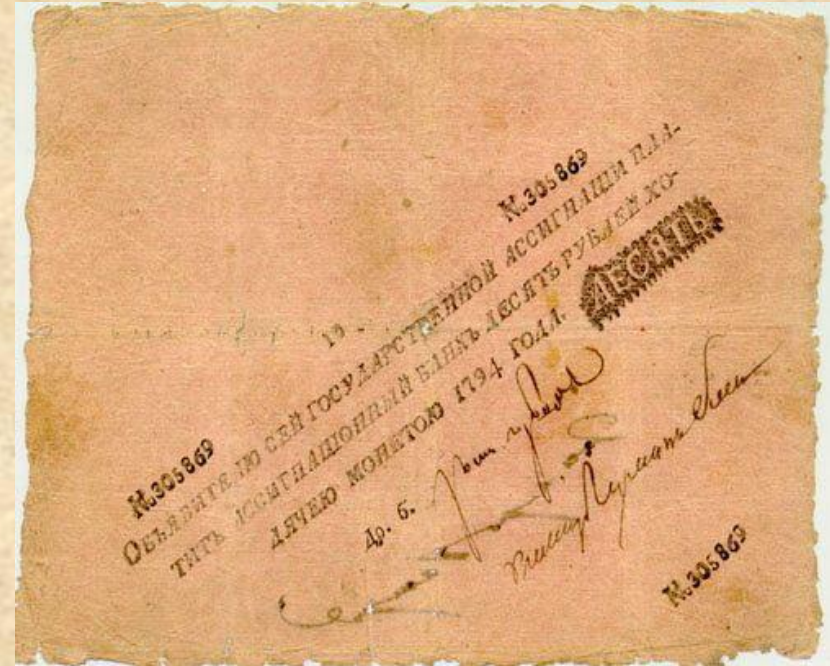 №305869
10
№305869
ОБЪЯВИТЕЛЮ СЕЙ ГОСУДАРСТВЕННОЙ АССИГНАЦІИ ПЛА-
ТИТЪ АССИГНАЦІОННЫЙ БАНКЪ ДЕСЯТЬ РУБЛЕЙ ХО-
ДЯЧЕЮ МОНЕТОЮ 1794 ГОДА.
ДЕСЯТЬ
№305869